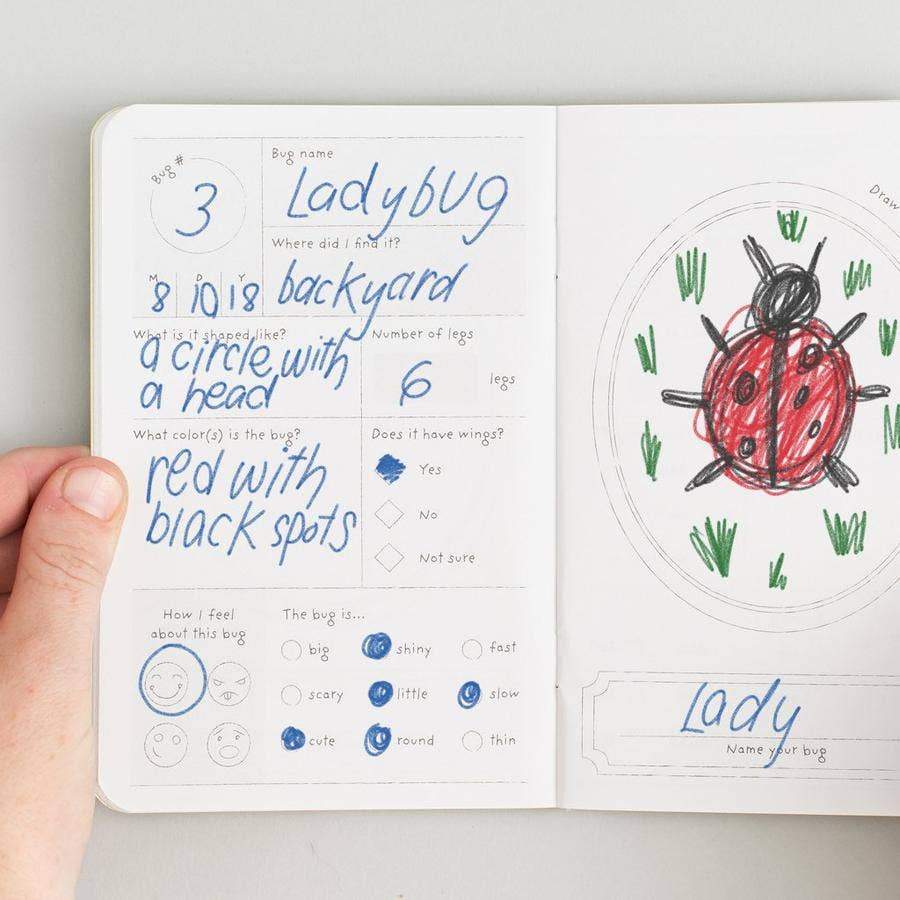 Bug #
3
Bug name
Ladybug
Where did I find it?
backyard
M D Y
8 10 18
What is it shaped like?
a circle with
a head
Number of legs
6 legs
What color(s) is the bug?
red with
black spots
Does it have wings?
Yes
No
Not sure
How I feel
about this bug
The bug is...
big shiny fast
scary little slow
cute round thin
Draw
Lady
Name your bug